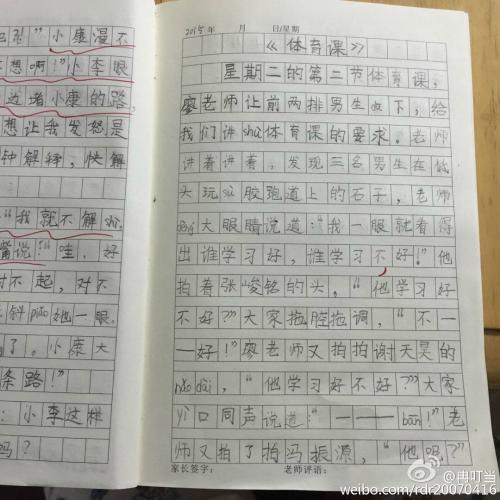 吧!”小康漫不
不想啊!”小李眼
边堵小康的路,
想让我发怒是
钟解释,快解
“我就不解释
嘴说!“哇,好
对不起,对不
斜piǎo她一眼
了。小康大
条路!”
:小李这样
吗?
2015年 月 日/星期
《体育课》
星期二的第二节体育课,
廖老师让前两排男生蹲下,给
我们讲shù体育课的要求。老师
讲着讲着,发现三名男生在低
头玩sù胶跑道上的石子,老师
dèng大眼睛说道:“我一眼就看得
出谁学习好,谁学习不好!”他
拍着张峻铭的头,“他学习好
不好?”大家拖腔拖调,“不一
一好!”廖老师又拍拍谢天昊的
nǎo dài,“他学习好不好?”大家
异口同声说道:“一一一bān!”老
师又拍了拍冯振源,“他呢?”
家长签字: 老师评语:
@冉叮当
weibo.com/rdr20070416